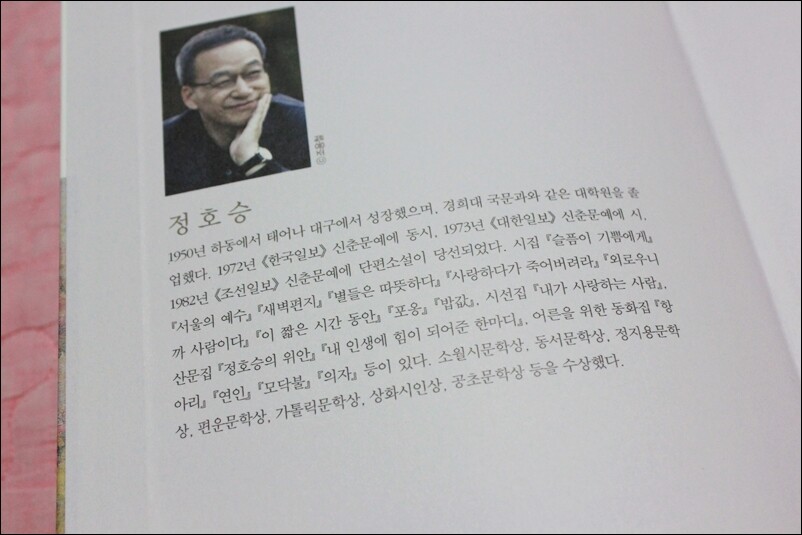 정호승
1950년 하동에서 태어나 대구에서 성장했으며, 경희대 국문과와 같은 대학원을 졸
업했다. 1972년 《한국일보》 신춘문예에 동시, 1973년 《대한일보》 신춘문예에 시,
1982년 《조선일보》 신춘문예에 단편소설이 당선되었다. 시집 『슬픔이 기쁨에게』
『서울의 예수』 『새벽편지』 『별들은 따뜻하다』 『사랑하다가 죽어버려라』 『외로우니
까 사람이다』 『이 짧은 시간 동안』 『포옹』 『밥값』, 시선집 『내가 사랑하는 사람』,
산문집 『정호승의 위안』 『내 인생에 힘이 되어준 한마디』, 어른을 위한 동화집 『항
아리』 『연인』 『모닥불』 『의자』 등이 있다. 소월시문학상, 동서문학상, 정지용문학
상, 편운문학상, 가톨릭문학상, 상화시인상, 공초문학상 등을 수상했다.